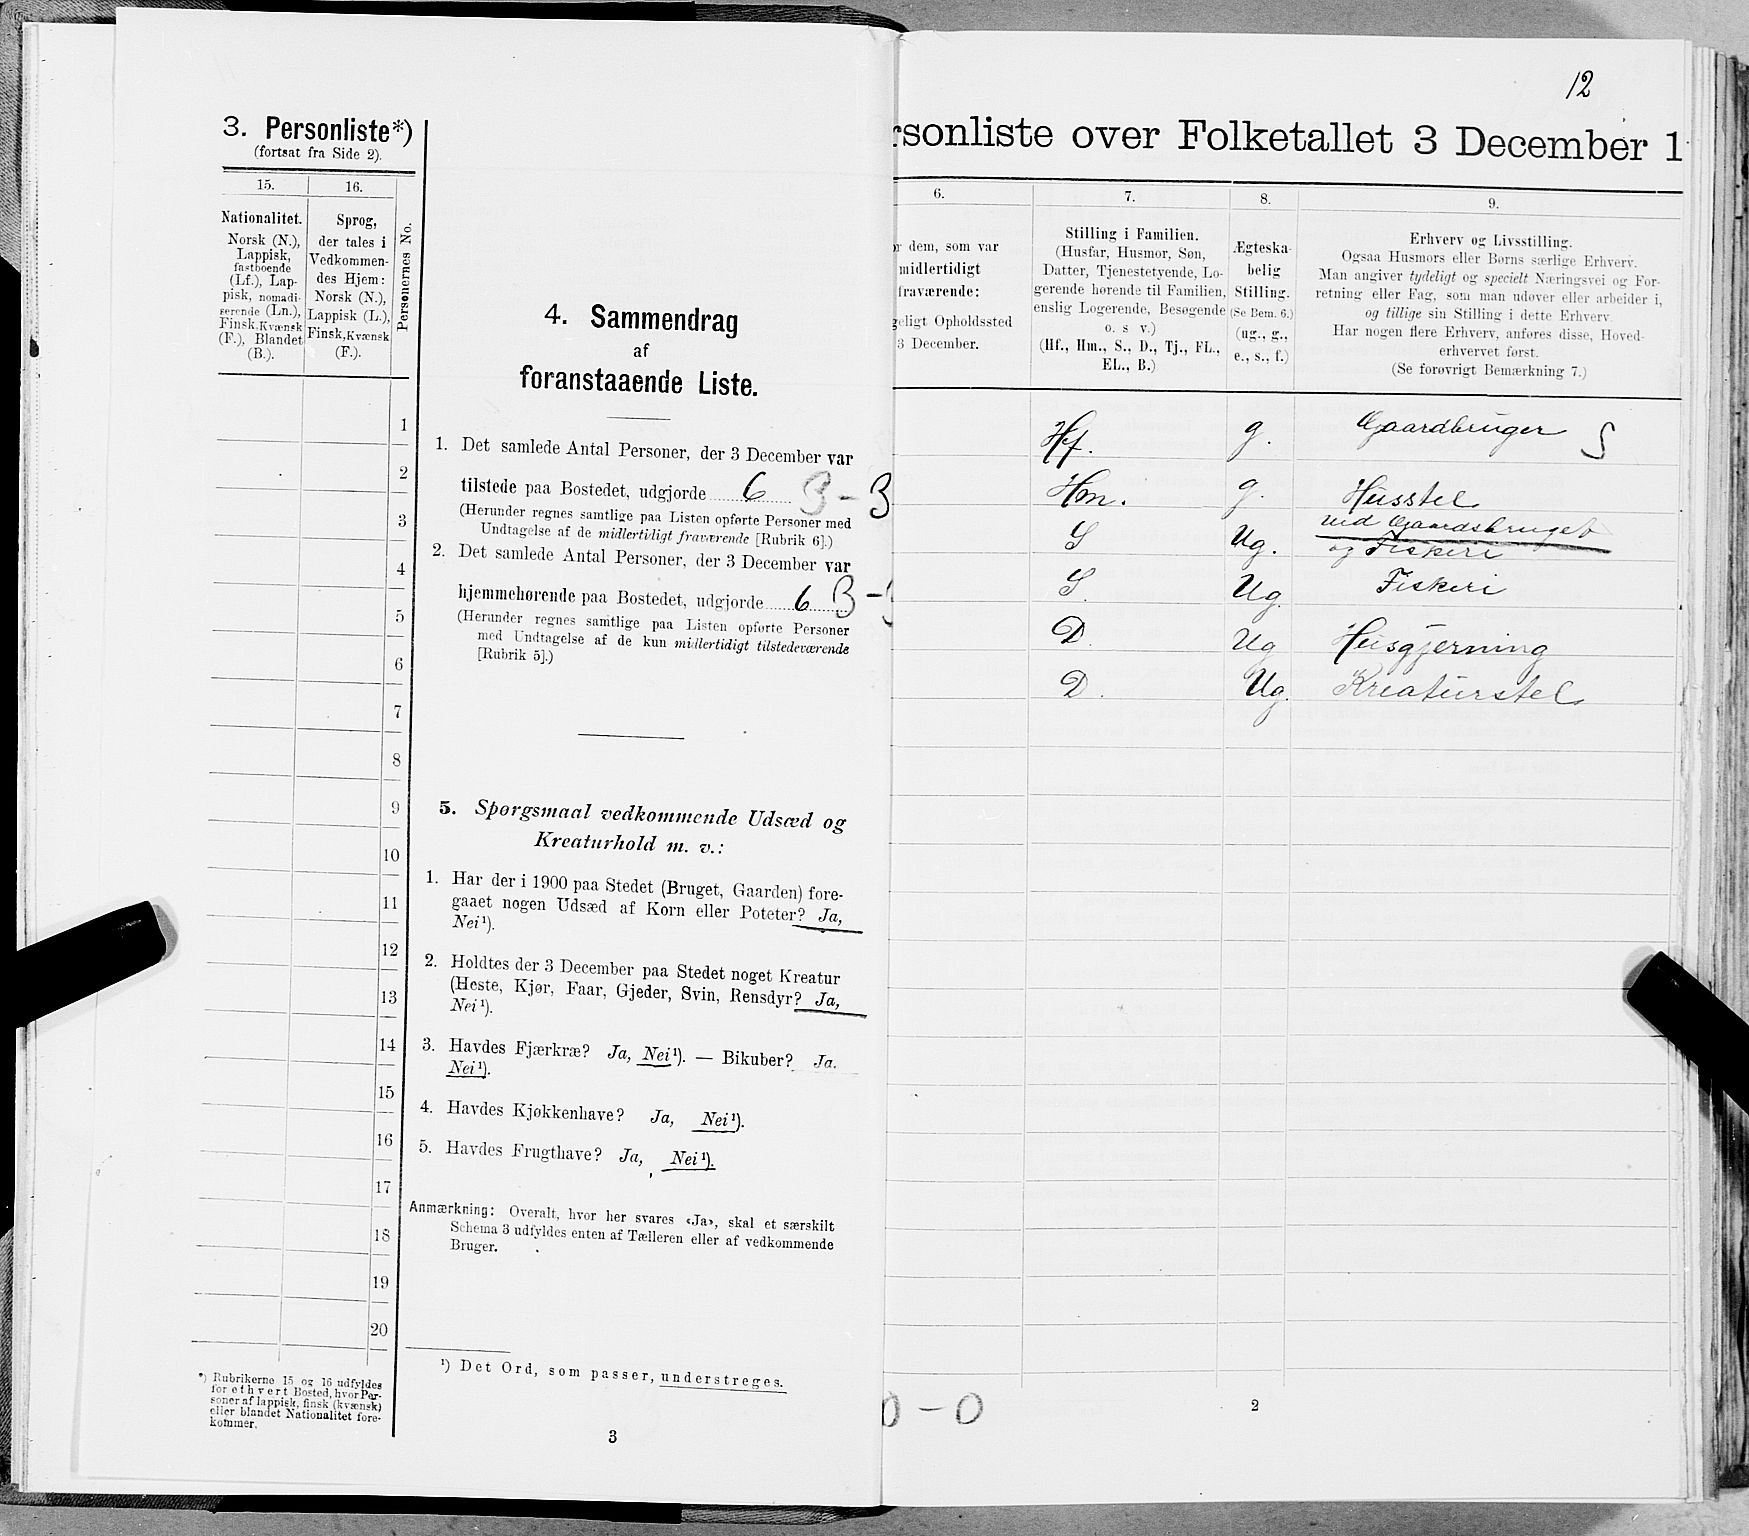 3. Personliste*)
(fortsat fra Side 2).
15.
16.
Personernes No.
Nationalitet.
Norsk (N.),
Lappisk,
fastboende
(Lf.), Lap-
pisk, nomadi-
serende (Ln.),
Finsk, Kvænsk
(F.), Blandet
(B.).
Sprog,
der tales i
Vedkommen-
des Hjem:
Norsk (N.),
Lappisk (L.),
Finsk, Kvænsk
(F.).
1
2
3
4
5
6
7
8
9
10
11
12
13
14
15
16
17
18
19
20
*) Rubrikerne 15 og 16 udfyldes
for ethvert Bosted, hvor Per-
soner af lappisk, finsk (kvænsk)
eller blandet Nationalitet fore-
kommer.
4. Sammendrag
af
foranstaaende Liste.
1. Det samlede Antal Personer, der 3 December var
tilstede paa Bostedet, udgjorde 6 3 - 3
(Herunder regnes samtlige paa Listen opførte Personer med
Undtagelse af de midlertidigt fraværende [Rubrik 6].)
2. Det samlede Antal Personer, der 3 December var
hjemmehørende paa Bostedet, udgjorde 6 3 -
(Herunder regnes samtlige paa Listen opførte Personer
med Undtagelse af de kun midlertidigt tilstedeværende
[Rubrik 5].)
5. Spørgsmaal vedkommende Udsæd og
Kreaturhold m. v.:
1. Har der i 1900 paa Stedet (Bruget, Gaarden) fore-
gaaet nogen Udsæd af Korn eller Poteter? Ja,
Nei¹).
2. Holdtes der 3 December paa Stedet noget Kreatur
(Heste, Kjør, Faar, Gjeder, Svin, Rensdyr? Ja,
Nei¹).
3. Havdes Fjærkræ? Ja, Nei¹). — Bikuber? Ja.
Nei¹).
4. Havdes Kjøkkenhave? Ja, Nei¹).
5. Havdes Frugthave? Ja, Nei¹).
Anmærkning: Overalt, hvor her svares «Ja», skal et særskilt
Schema 3 udfyldes enten af Tælleren eller af vedkommende
Bruger.
¹) Det Ord, som passer, understreges.
3
12
rsonliste over Folketallet 3 December 1
6.
r dem, som var
midlertidigt
fraværende:
geligt Opholdssted
3 December.
7.
Stilling i Familien.
(Husfar, Husmor, Søn,
Datter, Tjenestetyende, Lo-
gerende hørende til Familien,
enslig Logerende, Besøgende
o. s v.)
(Hf., Hm., S., D., Tj., FL.,
EL., B.)
8.
Ægteska-
belig
Stilling.
(Se Bem. 6.)
(ug., g.,
e., s., f.)
9.
Erhverv og Livsstilling.
Ogsaa Husmors eller Børns særlige Erhverv.
Man angiver tydeligt og specielt Næringsvei og For-
retning eller Fag, som man udøver eller arbeider i,
og tillige sin Stilling i dette Erhverv.
Har nogen flere Erhverv, anføres disse, Hoved-
erhvervet først.
(Se forøvrigt Bemærkning 7.)
Hf. g. Gaardbruger S
Hm. g. Husstel
S Ug. ved Gaardsbruget
og Fiskeri
S. Ug. Fiskeri
D Ug Husgjerning
D. Ug. Kreaturstel
0 - 0
2